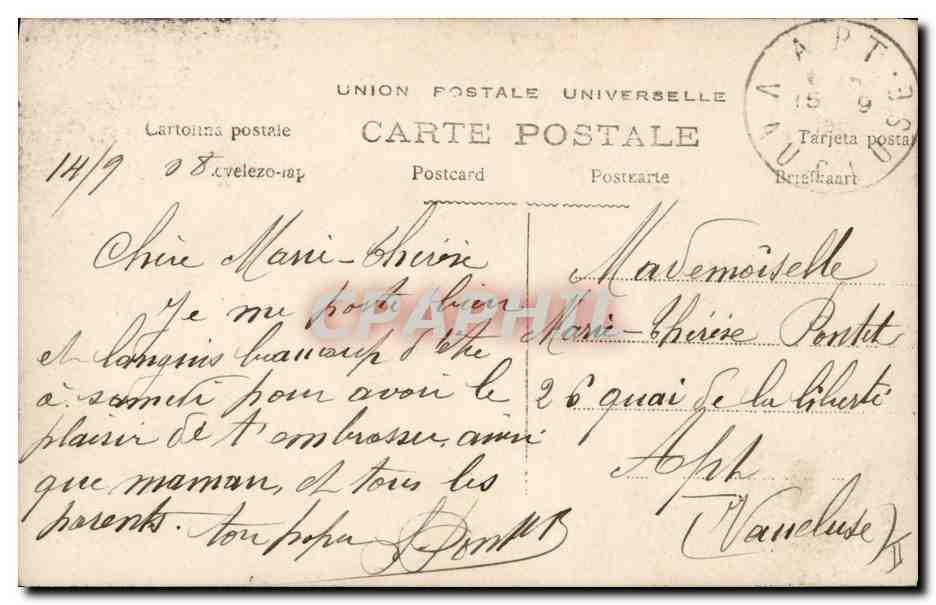 UNION POSTALE UNIVERSELLE
CARTE POSTALE
Cartolina postale
Tarjeta postal
Postcard
Postkarte
Briefkaart
APT
VAUCLUSE
15 9
14/9 08
Chère Marie-Thérèse
Je me porte bien
et languis beaucoup d'être
à samedi pour avoir le
plaisir de t'embrasser, ainsi
que maman, et tous les
parents.
ton papa
Mademoiselle
Marie-Thérèse Pontet
26 quai de la liberté
Apt
(Vaucluse)
CPAPHIL